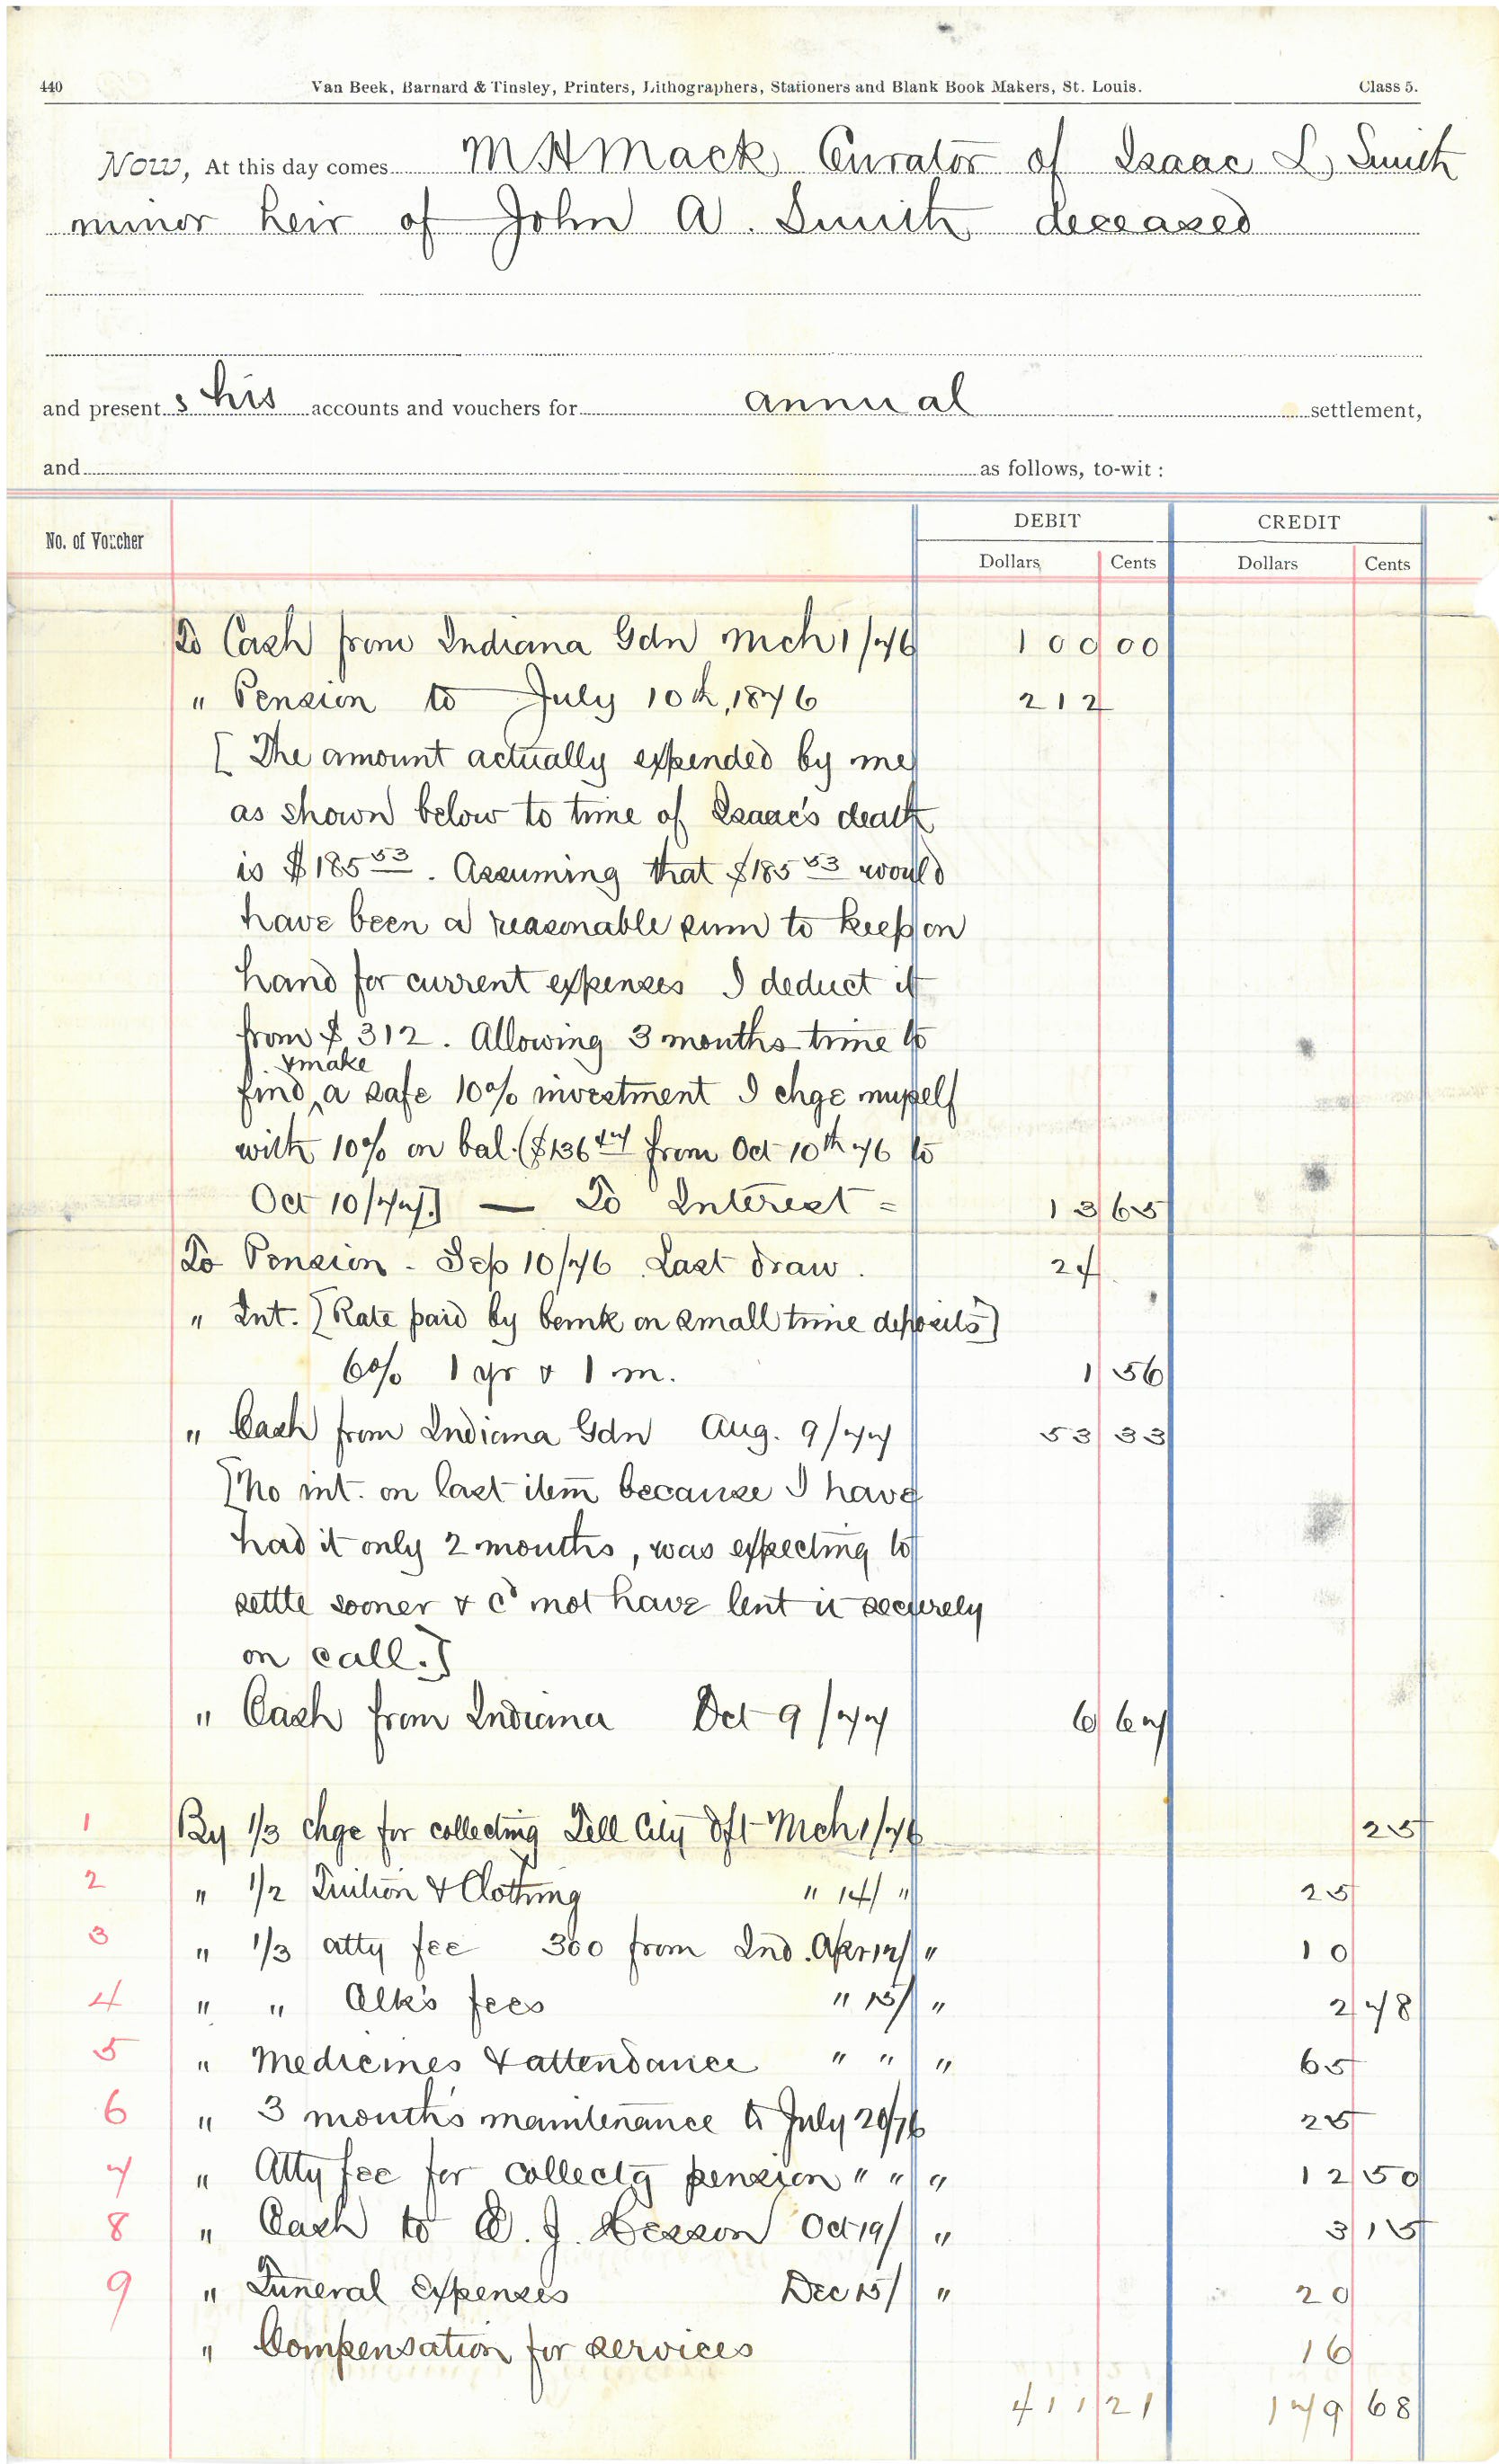 440 Van Beek, Barnard & Tinsley, Printers, Lithographers, Stationers and Blank Book Makers, St. Louis. Class 5.
Now, At this day comes M H Mack Curator of Isaac L Smith
minor heir of John A. Smith deceased
and present s his accounts and vouchers for annual settlement,
and as follows, to-wit :
No. of Voucher DEBIT CREDIT
Dollars Cents Dollars Cents
To Cash from Indiana Gdn Mch 1/76 100 00
" Pension to July 10th, 1876 212
[ The amount actually expended by me
as shown below to time of Isaac's death
is $185 53. Assuming that $185 53 would
have been a reasonable sum to keep on
hand for current expenses I deduct it
from $ 312. Allowing 3 months time to
& make
find a safe 10% investment I chge myself
with 10% on bal. ($136 47 from Oct 10th 76 to
Oct 10/77.] — To Interest = 13 65
To Pension - Sep 10/76 Last draw. 24
" Int. [Rate paid by bank on small time deposits]
6% 1 yr & 1 m. 1 56
" Cash from Indiana Gdn Aug. 9/77 53 33
[No int. on last item because I have
had it only 2 months, was expecting to
settle sooner & cd not have lent it securely
on call.]
" Cash from Indiana Oct 9/77 6 67
1 By 1/3 chge for collecting Tell City Dft Mch 1/76 25
2 " 1/2 Tuition & Clothing " 14/ " 25
3 " 1/3 atty fee 300 from Ind. Apr 12/ " 10
4 " " Clk's fees " 15/ " 2 78
5 " Medicines & attendance " " " 65
6 " 3 months maintenance to July 20/76 25
7 " Atty fee for collectg pension " " " 12 50
8 " Cash to D. J. Hesson Oct 19/ " 3 15
9 " Funeral expenses Dec 15/ " 20
" Compensation for services 16
411 21 179 68